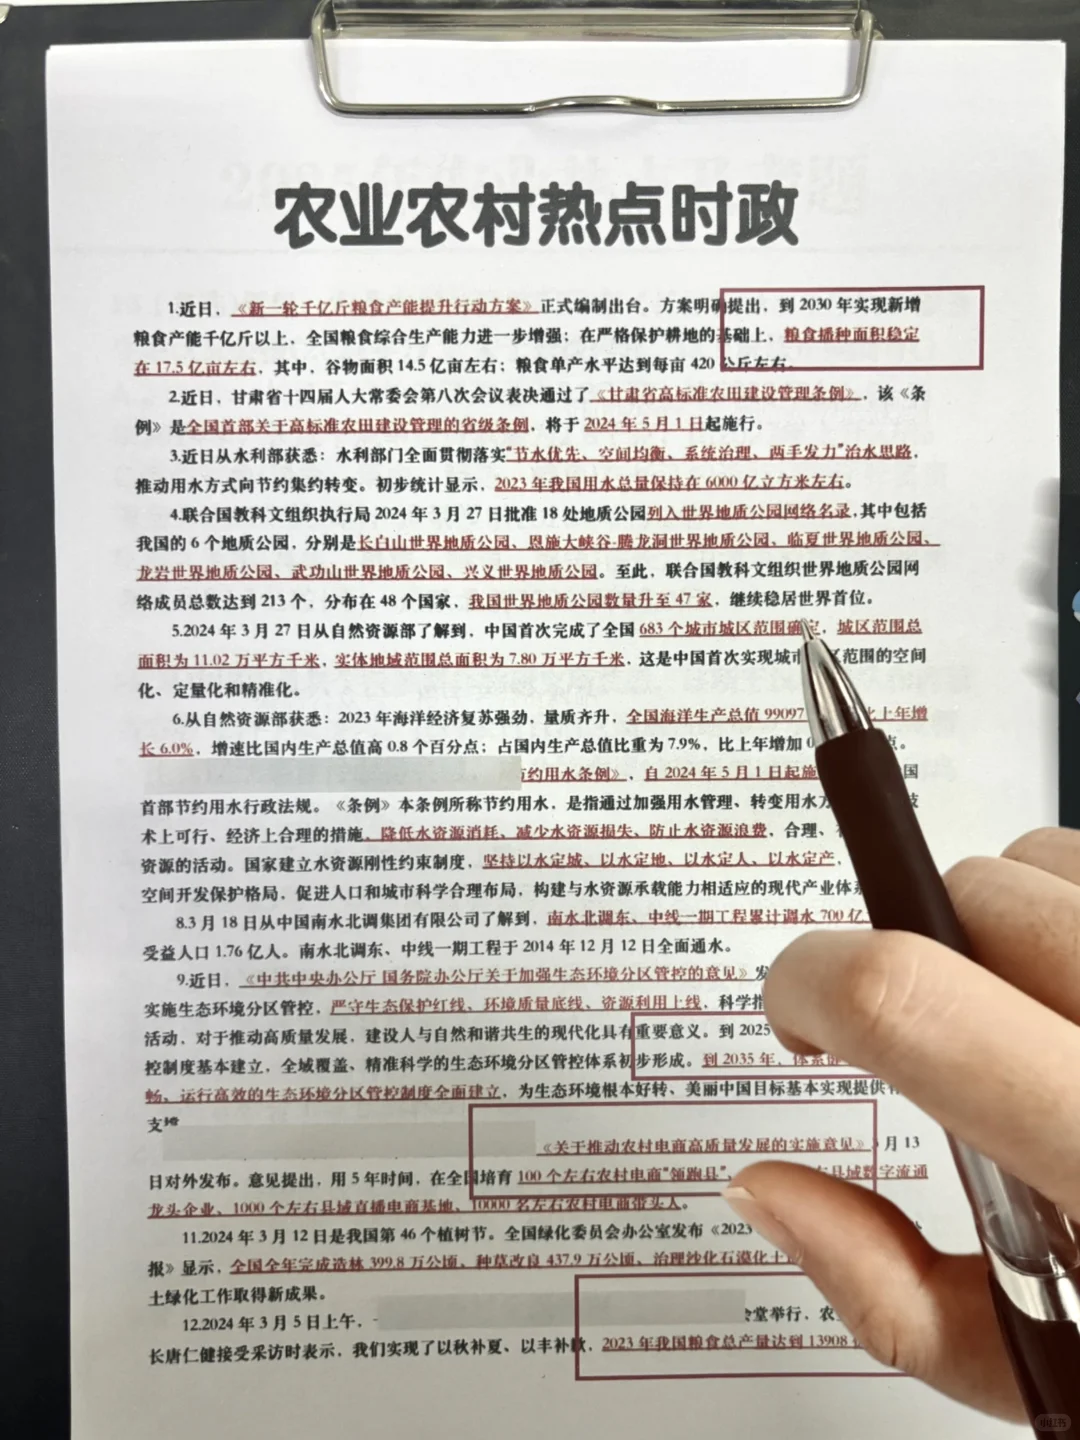 农业农村热点时政
1.近日，《新一轮千亿斤粮食产能提升行动方案》正式编制出台。方案明确提出，到 2030 年实现新增
粮食产能千亿斤以上，全国粮食综合生产能力进一步增强；在严格保护耕地的基础上，粮食播种面积稳定
在 17.5 亿亩左右，其中，谷物面积 14.5 亿亩左右；粮食单产水平达到每亩 420 公斤左右。
2.近日，甘肃省十四届人大常委会第八次会议表决通过了《甘肃省高标准农田建设管理条例》，该《条
例》是全国首部关于高标准农田建设管理的省级条例，将于 2024 年 5 月 1 日起施行。
3.近日从水利部获悉：水利部门全面贯彻落实“节水优先、空间均衡、系统治理、两手发力”治水思路，
推动用水方式向节约集约转变。初步统计显示，2023 年我国用水总量保持在 6000 亿立方米左右。
4.联合国教科文组织执行局 2024 年 3 月 27 日批准 18 处地质公园列入世界地质公园网络名录，其中包括
我国的 6 个地质公园，分别是长白山世界地质公园、恩施大峡谷-腾龙洞世界地质公园、临夏世界地质公园、
龙岩世界地质公园、武功山世界地质公园、兴义世界地质公园。至此，联合国教科文组织世界地质公园网
络成员总数达到 213 个，分布在 48 个国家，我国世界地质公园数量升至 47 家，继续稳居世界首位。
5.2024 年 3 月 27 日从自然资源部了解到，中国首次完成了全国 683 个城市城区范围确定，城区范围总
面积为 11.02 万平方千米，实体地域范围总面积为 7.80 万平方千米，这是中国首次实现城市 范围的空间
化、定量化和精准化。
6.从自然资源部获悉：2023 年海洋经济复苏强劲，量质齐升，全国海洋生产总值 99097 比上年增
长 6.0%，增速比国内生产总值高 0.8 个百分点；占国内生产总值比重为 7.9%，比上年增加 点。
节约用水条例》，自 2024 年 5 月 1 日起施 国
首部节约用水行政法规。《条例》本条例所称节约用水，是指通过加强用水管理、转变用水方 技
术上可行、经济上合理的措施，降低水资源消耗、减少水资源损失、防止水资源浪费，合理、
资源的活动。国家建立水资源刚性约束制度，坚持以水定城、以水定地、以水定人、以水定产，
空间开发保护格局，促进人口和城市科学合理布局，构建与水资源承载能力相适应的现代产业体系
8.3 月 18 日从中国南水北调集团有限公司了解到，南水北调东、中线一期工程累计调水 700 亿
受益人口 1.76 亿人。南水北调东、中线一期工程于 2014 年 12 月 12 日全面通水。
9.近日，《中共中央办公厅 国务院办公厅关于加强生态环境分区管控的意见》发
实施生态环境分区管控，严守生态保护红线、环境质量底线、资源利用上线，科学指
活动，对于推动高质量发展，建设人与自然和谐共生的现代化具有重要意义。到 2025
控制度基本建立，全域覆盖、精准科学的生态环境分区管控体系初步形成。到 2035 年，体系
畅、运行高效的生态环境分区管控制度全面建立，为生态环境根本好转、美丽中国目标基本实现提供有
支撑
《关于推动农村电商高质量发展的实施意见》 月 13
日对外发布。意见提出，用 5 年时间，在全国培育 100 个左右农村电商“领跑县”， 县域数字流通
龙头企业、1000 个左右县域直播电商基地、10000 名左右农村电商带头人。
11.2024 年 3 月 12 日是我国第 46 个植树节。全国绿化委员会办公室发布《2023
报》显示，全国全年完成造林 399.8 万公顷、种草改良 437.9 万公顷、治理沙化石漠化土
土绿化工作取得新成果。
12.2024 年 3 月 5 日上午， 堂举行，农
长唐仁健接受采访时表示，我们实现了以秋补夏、以丰补歉，2023 年我国粮食总产量达到 13908
小红书